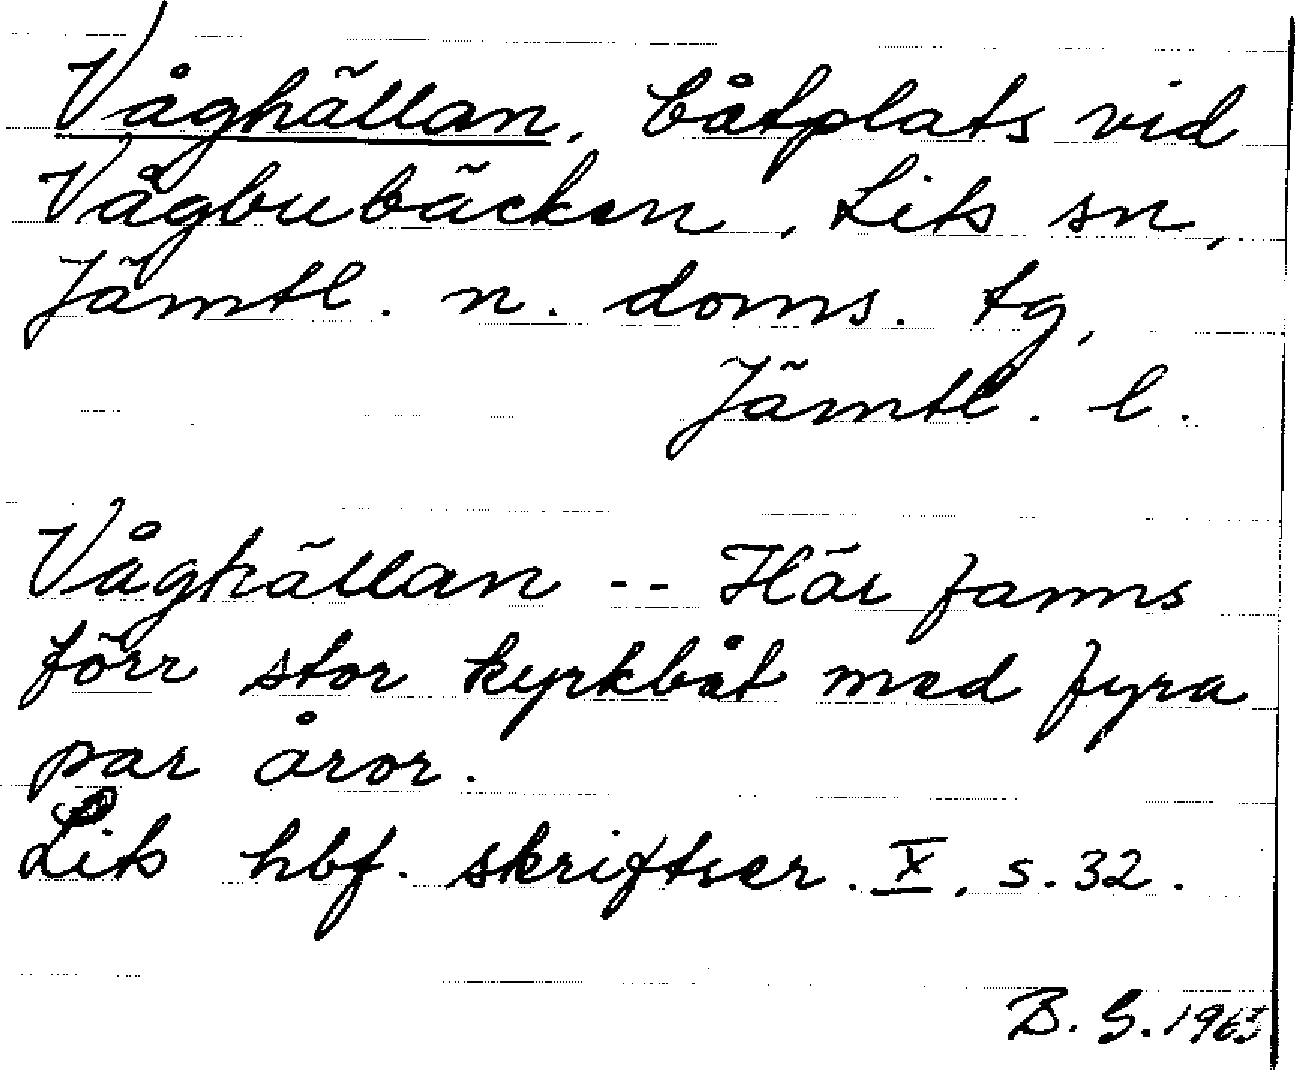 Våghällan, båtplats vid
Vågbubäcken, Lits sn,
Jämtl. n. doms. tg,
Jämtl. l.
Våghällan -- Här fanns
förr stor kyrkbåt med fyra
par åror.
Lits hbf. skriftser. X, s. 32.
B. G. 1965